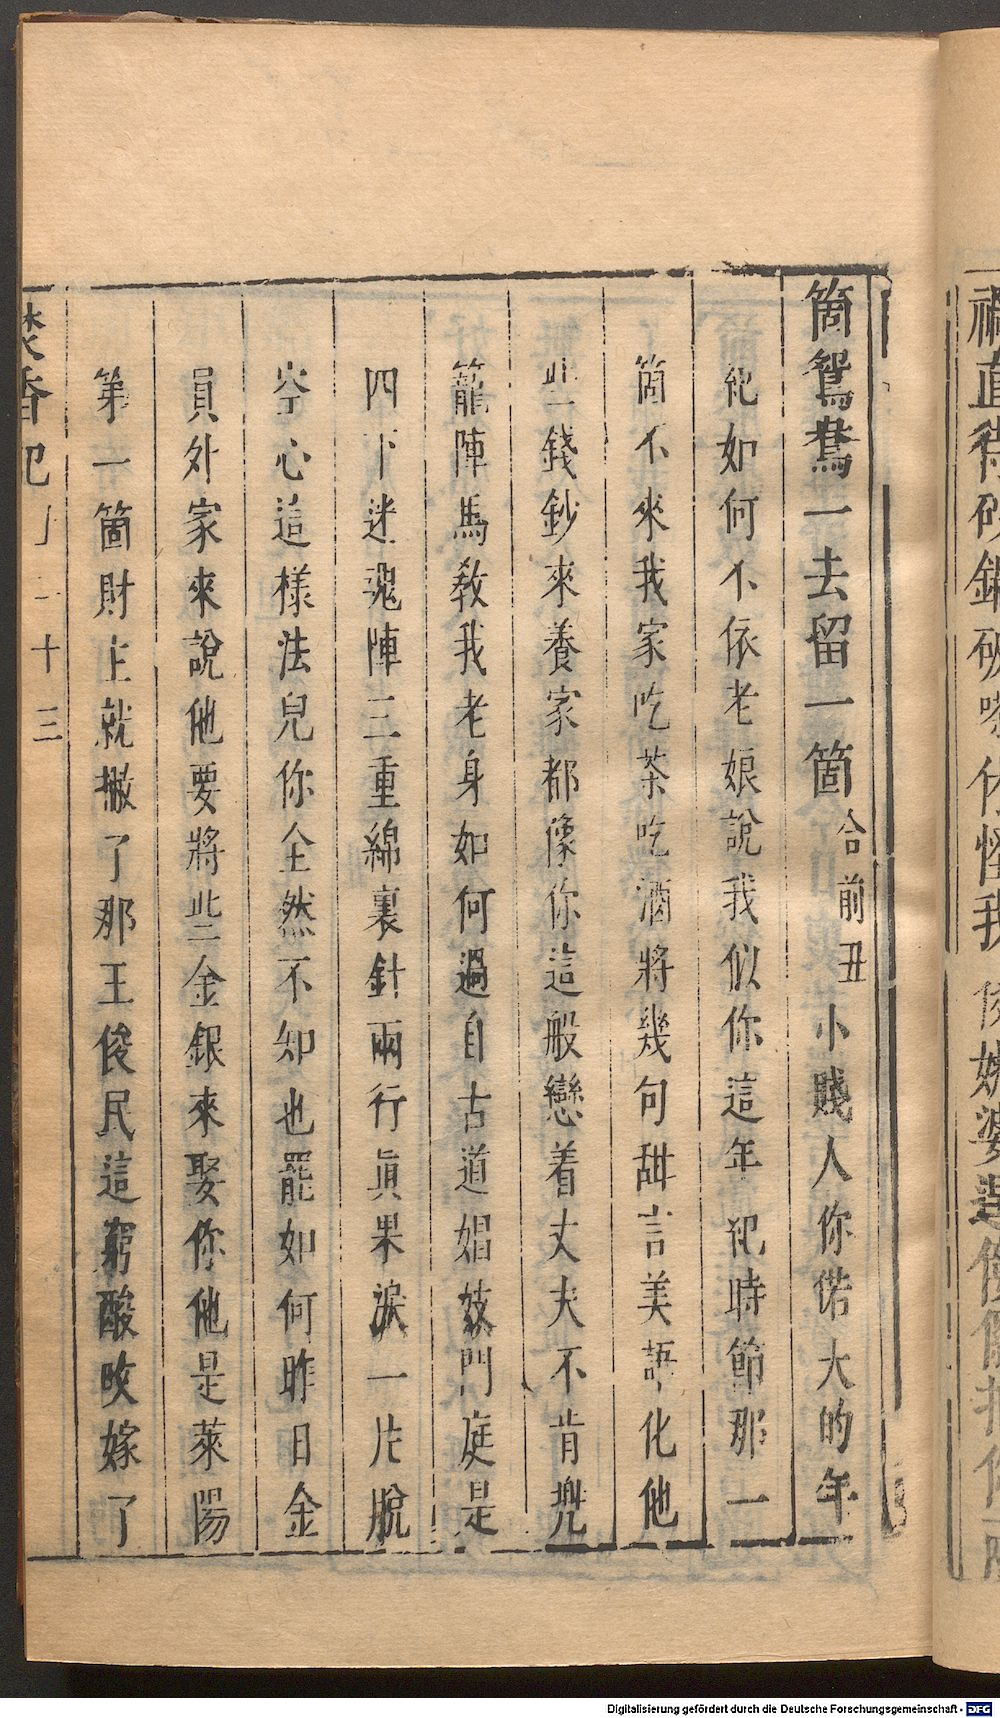 箇鴛鴦一去留一箇合前丑小賤人你偌大的年
紀如何不依老娘說我似你這年犯時節那一
箇不來我家吃茶吃酒將幾句甜言美語化他
些錢鈔來養家都像你這般戀着丈夫不肯兜
籠陣馬教我老身如何過自古道娼妓門庭是
四下迷魂陣三重綿裏針兩行真果淚一片脫
空心這樣法兒你全然不知也罷如何昨日金
員外家來說他要將些金銀來娶你他是萊陽
第一箇財主就撇了那王俊民這窮酸改嫁了
焚香記
十三
Digitalisierung gefördert durch die Deutsche Forschungsgemeinschaft - DFG